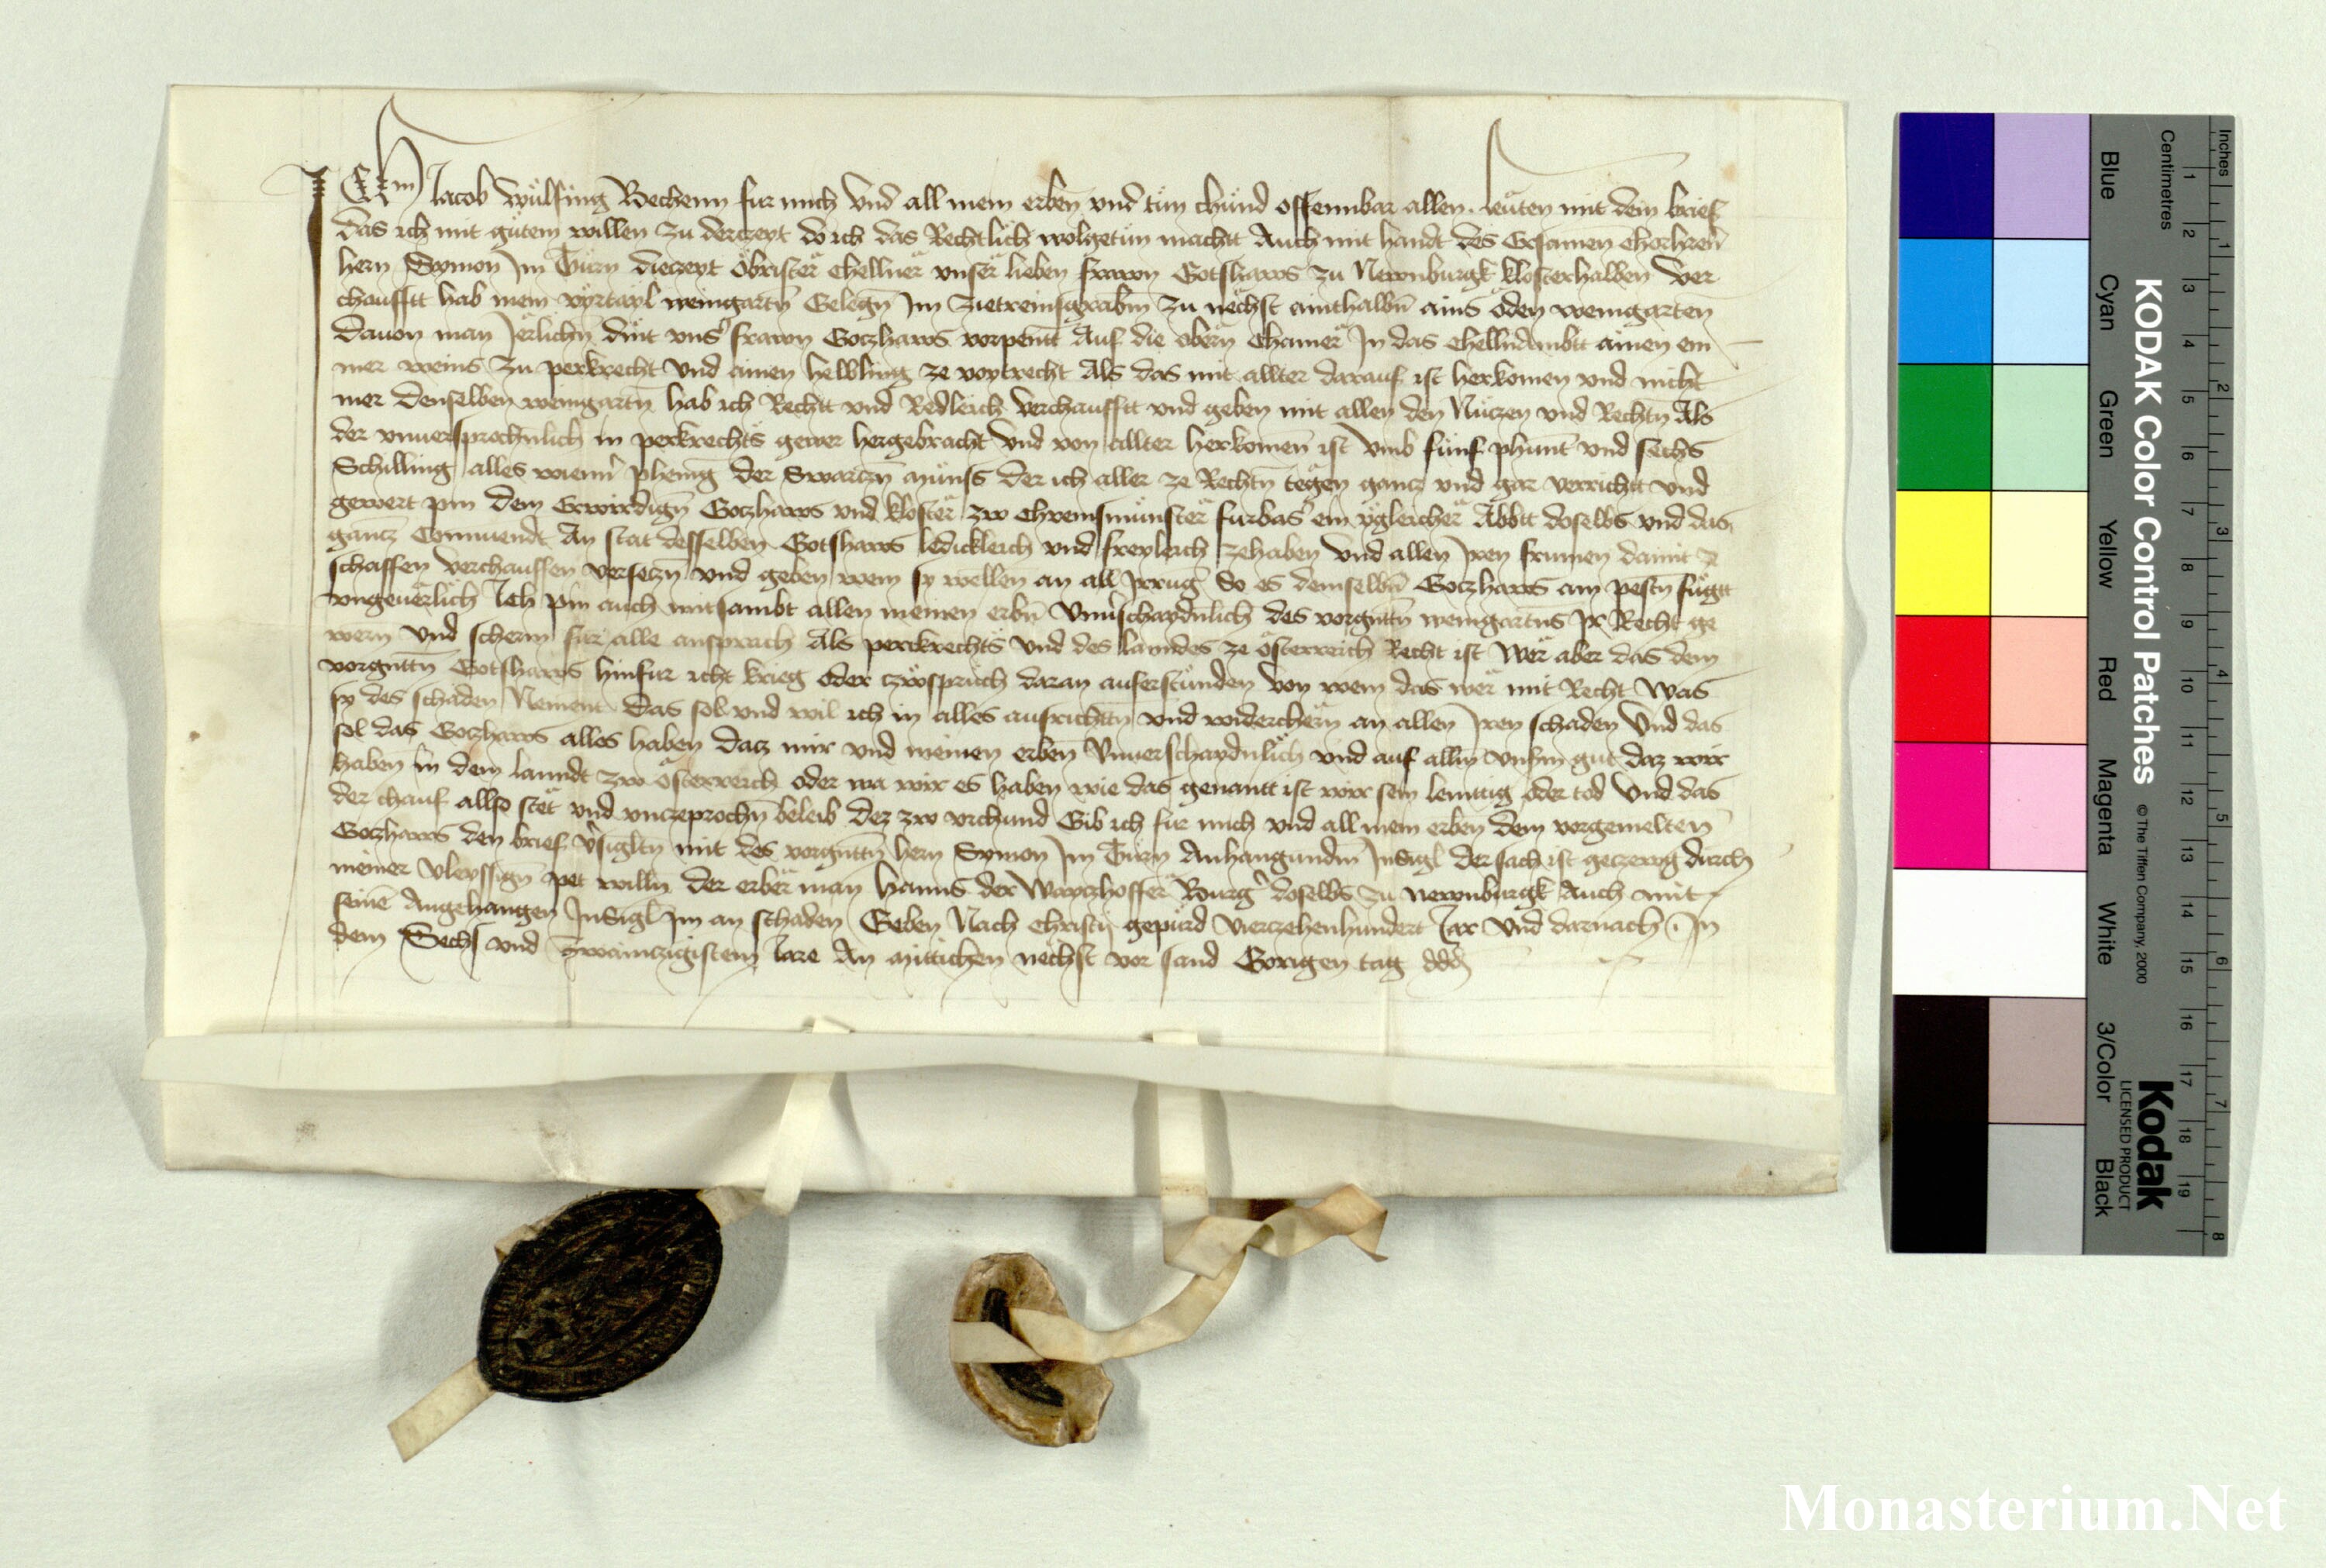 Ich Jacob Wulfing Bechenn fur mich vnd all mein erben vnd tun chund offennbar allen leuten mit dem brief
das ich mit gutem willen zu derczeyt do ich das Rechtlich wolgetun machtt Auch mit handt des Ersamen chorheren
hern Symon Jm Turn dieczeyt obrister chellner vnser lieben frawn Gotshaws zu Newnburgk klosterhalben ver
chaufftt hab mein weingartn Gelegn Jm zu nechst ainthalbn ains oden weingarten
dauon man Jerlichn dint vnser frawn Goczhaws Auf die obern chamer Jn das chellnambtt ainen em
mer weins zu perkrecht vnd ainen helbling ze voytrecht Als das mit allter darauf ist herkomen vnd nicht
mer denselben weingartn hab ich Rechtt vnd Redleich verchaufftt vnd geben mit allen den Nuczen vnd Rechtn Als
der vnuersprochnlich in perkrechts gewer hergebracht vnd von allter herkomen ist vmb funf phunt vnd sechs
Schilling alles wienner phenig der Swarczn munss der ich aller ze Rechtn tegen gancz vnd gar verrichtt vnd
gewert pin dem Erwirdign Goczhaws vnd kloster zw Chremsmunster furbas ein ygleicher Abbtt doselbs vnd das
gancz Conuendt An stat desselben Gotshaws ledickleich vnd freyleich zehaben vnd allen Jren frumen damit ze
schaffen verchauffen verseczn vnd geben wem sy wellen an all Jrrug So es demselbn Goczhaws am pestn fugtt
vngeuerlich Ich pin auch mitsambt allen meinen erbn vnuerschaydnlich des vorgnttn weingartns Jr Recht ge
wern vnd scherm fur alle ansprach Als perckrechts vnd des lanndes ze osterreich Recht ist Wer aber das dem
vorgnttn Gotshaws hinfur icht krieg oder zwspruch daran auferstunden von wem das wer mit Recht Was
sy des schaden Nement Das sol vnd wil ich in alles ausrichttn vnd widerchern an allen Jren schaden Vnd das
sol das Goczhaws alles haben dacz mir vnd meinen erben Vnuerschaydnlich vnd auf allm vnserm gut daz wir
haben in dem lanndt zw osterreich oder wa wir es haben wie das genantt ist wir sein lemttig oder tod Vnd das
der chauf allso stet vnd vnczeprochn beleib Dez zw vrchund Gib ich fur mich vnd all mein erben dem vorgemelten
Goczhaws den brief versigltn mit des vorgnttn hern Symon Jm Turn Anhangundm Jnsigl der sach ist geczewg durch
meiner vleyssign pet willn der erber man Hanns der Burger doselbs zu newnburgk Auch mit
seinem Angehangen Jnsigl Jm an schaden Geben Nach Christi gepurd vierczehenhundert Jar vnd darnach Jn
dem Sechs vnd zwainczigistem Jare An mittichen nechst vor sand Gorigen tag

KODAK Color Control Patches © The Tiffen Company, 2000 Kodak
LICENSED PRODUCT
Blue Cyan Green Yellow Red Magenta White 3/Color Black
Inches 1 2 3 4 5 6 7 8
Centimetres 1 2 3 4 5 6 7 8 9 10 11 12 13 14 15 16 17 18 19
Monasterium.Net